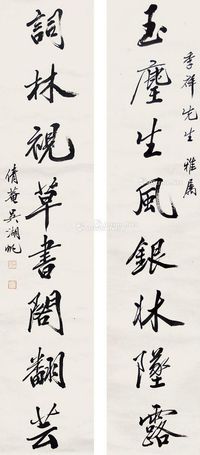 玉麈生風銀牀墜露
季祥先生雅屬
詞林視草書閣翻芸
倩菴吳湖帆